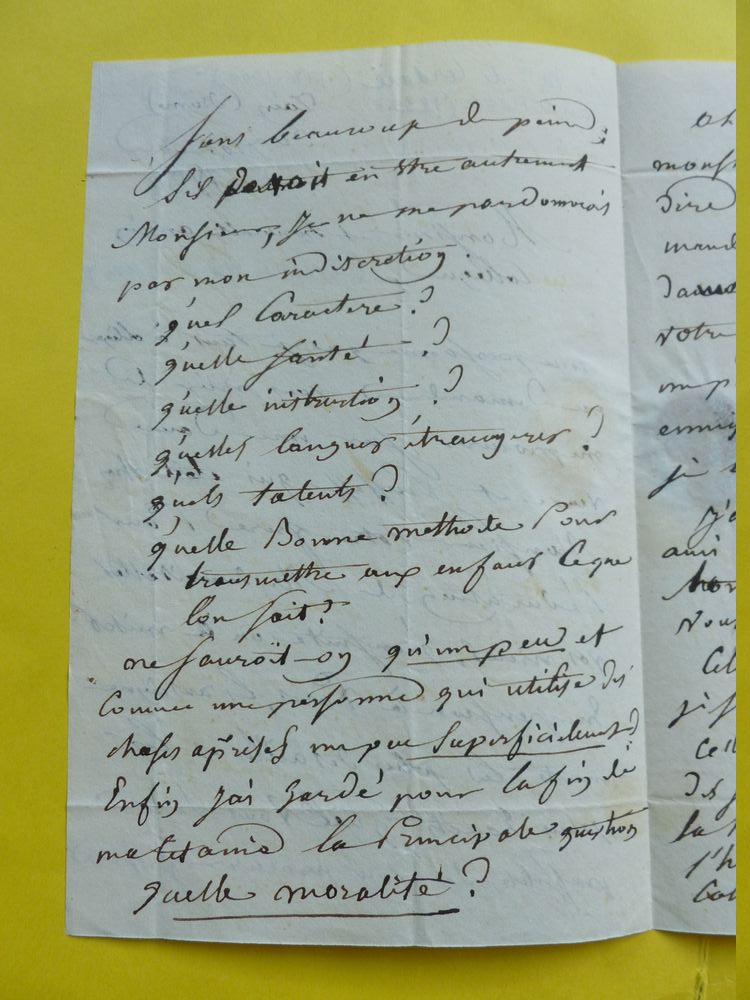 sans beaucoup de peine;
s'il devoit en etre autrement
Monsieur, je ne me pardonnerois
pas mon indiscretion.
quel Caractere?
quelle santé?
quelle instruction?
quelles langues étrangeres?
quels talents?
quelle Bonne methode Pour
transmettre aux enfans Ceque
lon sait?
ne sauroit-on qu'un peu et
comme une personne qui utilise des
choses aprises un peu superficielement?
Enfin j'ai gardé pour la fin de
ma litanie la Principale question
quelle moralité?
monsi
dire
mand
votre
un p
ennuy
je
j'a
ami
vous
Cel
des